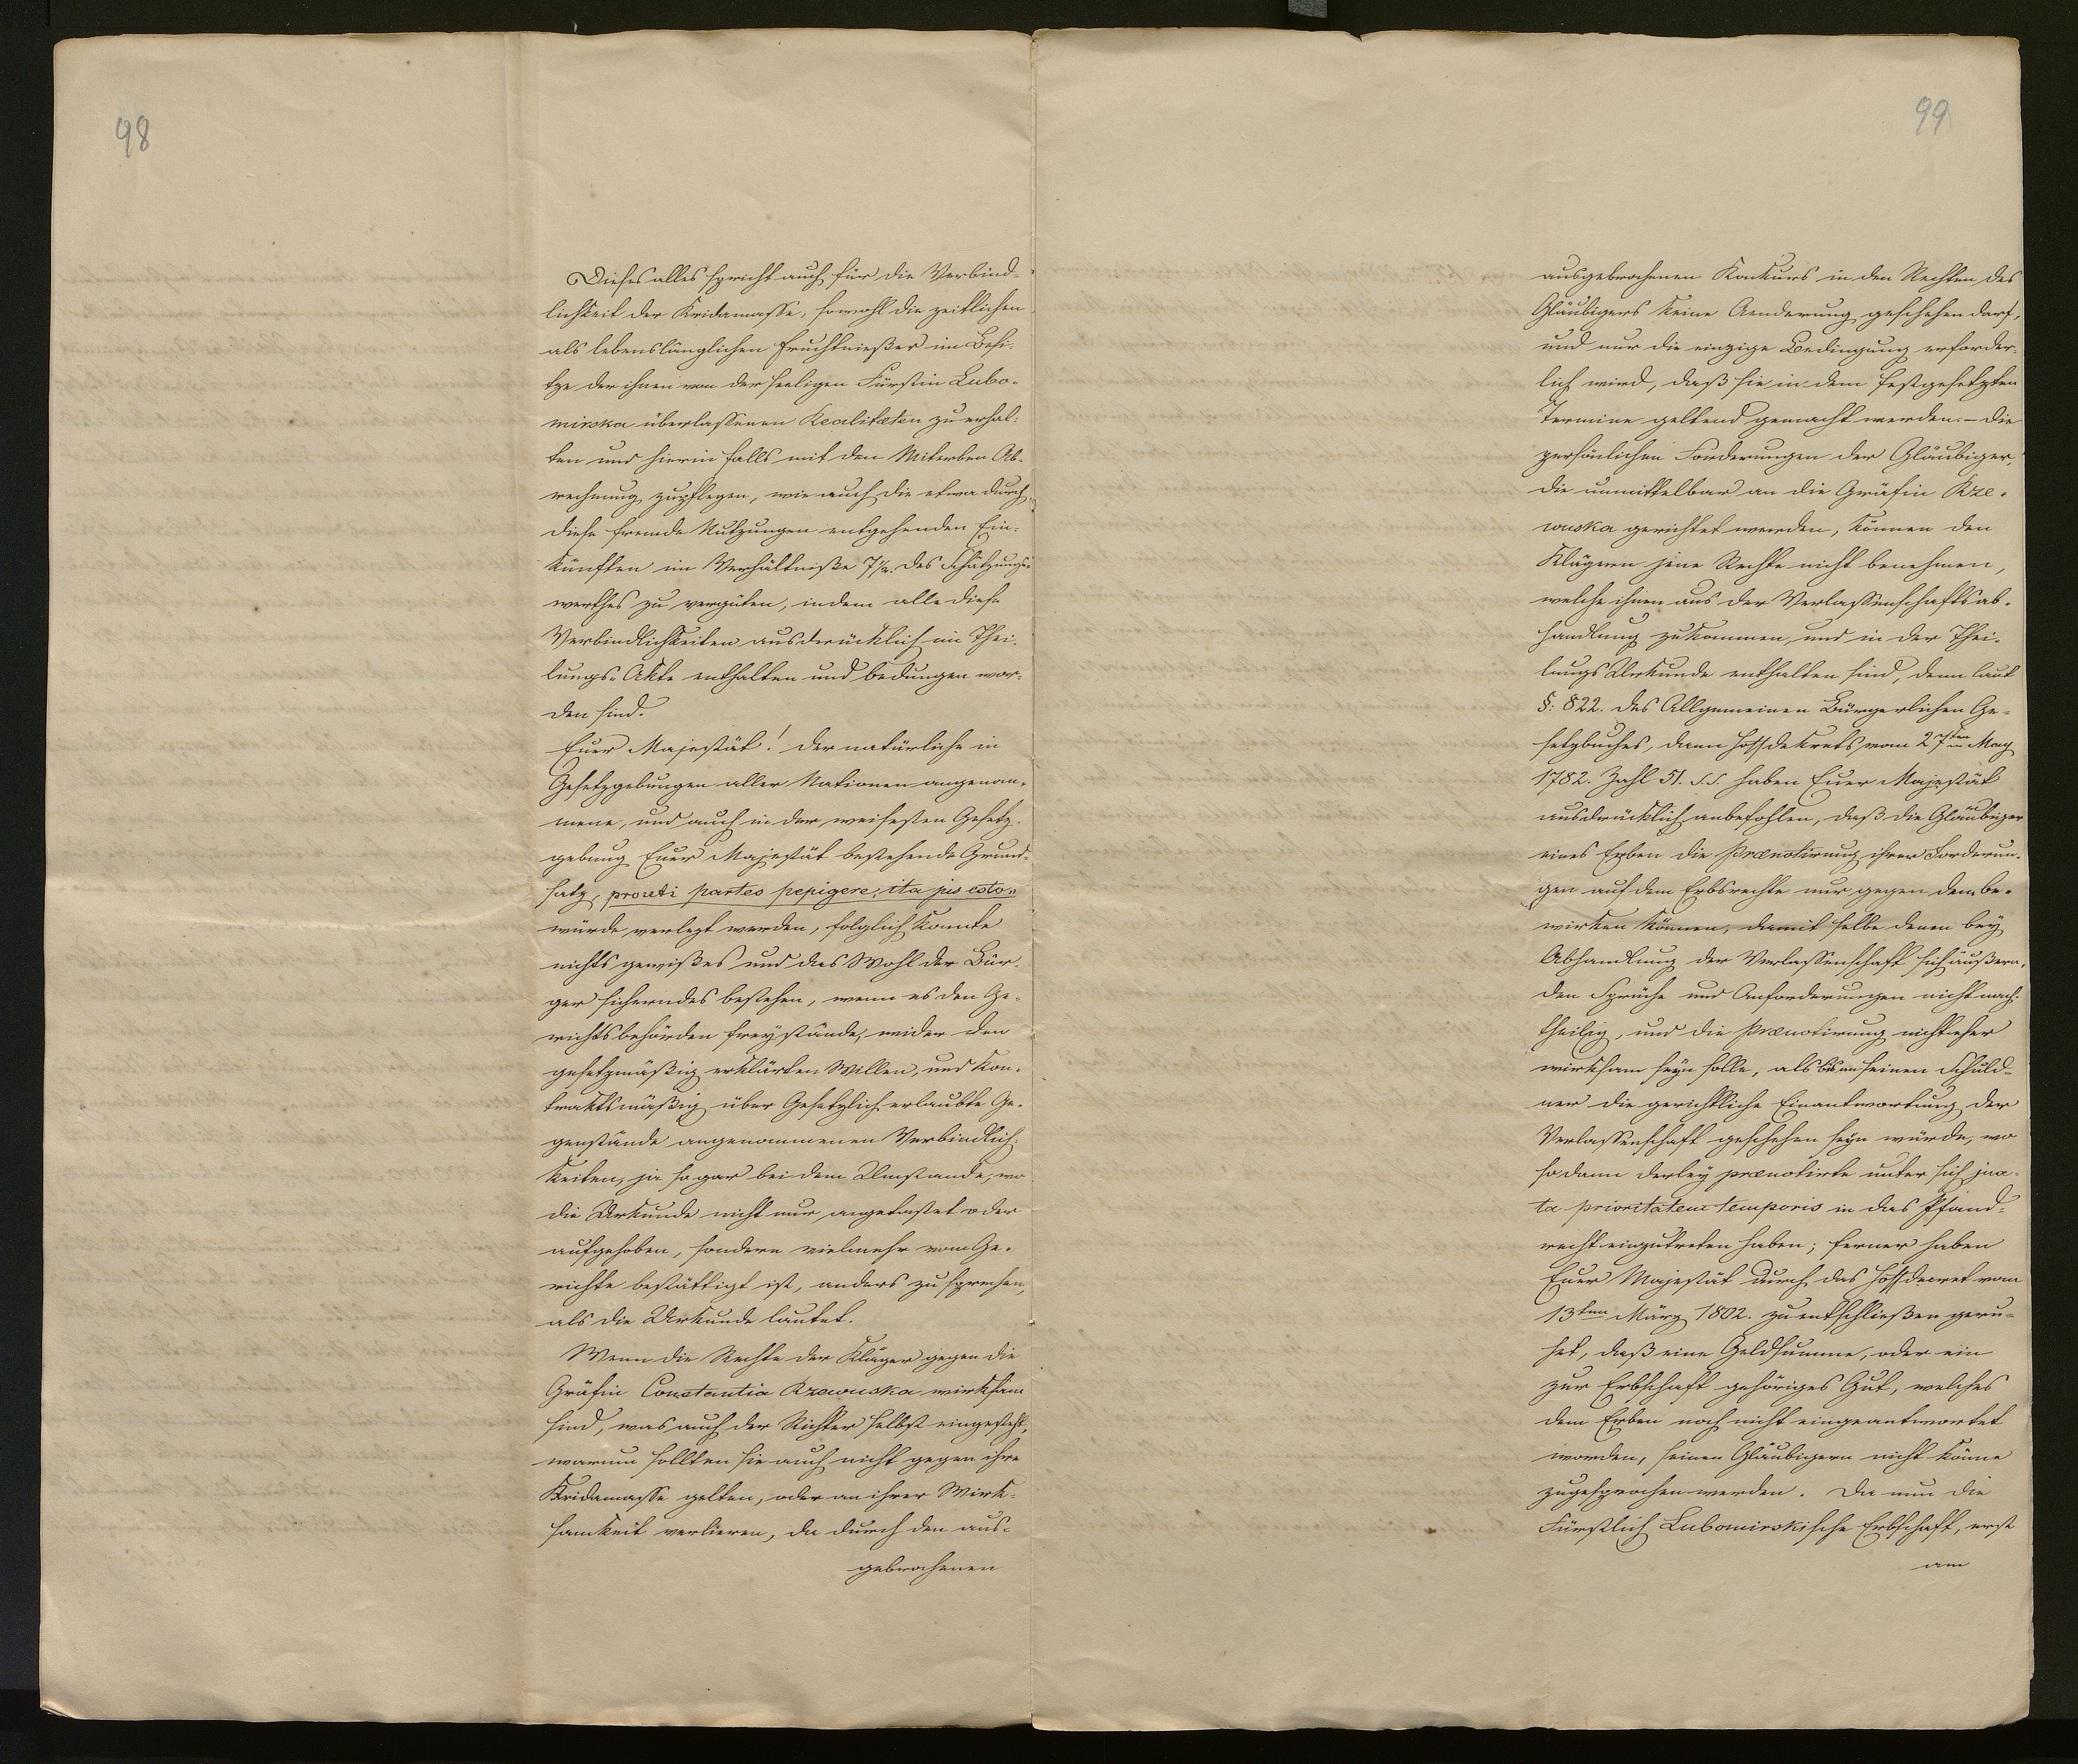 98
Dieses alles spricht auch für die Verbind-
lichkeit der Kridamasse, sowohl die zeitlichen
als lebenslänglichen Fruchtnießer im Besi-
tze der ihnen von der seeligen Fürstin Lubo-
mirska überlassenen Realitæten zu erhal-
ten und hierin falls mit den Miterben Ab-
rechnung zu pflegen, wie auch die etwa durch
diese fremde Nutzungen entgehenden Ein-
künften im Verhältniße des Schätzungs-
werthes zu vergüten, indem alle diese
Verbindlichkeiten ausdrücklich im Thei-
lungs-Akte enthalten und bedungen wor-
den sind.
Euer Majestät! der natürliche in
Gesetzgebungen aller Nationen angenom-
mene, und auch in der weisesten Gesetz-
gebung Euer Majestät bestehende Grund-
satz, prouti partes pepigere, ita jus esto,,
würde verlezt werden, folglich könnte
nichts gewißes und das Wohl der Bür-
ger sicherndes bestehen, wenn es den Ge-
richtsbehörden freystände, wider den
gesetzmäßig erklärten Willen, und Kon-
traktsmäßig über Gesetzlich erlaubte Ge-
genstände angenommenen Verbindlich-
keiten, ja sogar bei dem Umstande, wo
die Urkunde nicht nur angetastet oder
aufgehoben, sondern vielmehr vom Ge-
richte bestättigt ist, anders zu sprechen,
als die Urkunde lautet.
Wenn die Rechte der Kläger gegen die
Gräfin Constantia Rzewuska wirksam
sind, was auch der Richter selbst eingesteht,
warum sollten sie auch nicht gegen ihre
Kridamasse gelten, oder an ihrer Wirk-
samkeit verlieren, da durch den aus-
gebrochenen
99
ausgebrochenen Konkurs in den Rechten des
Gläubigers keine Aenderung geschehen darf,
und nur die einzige Bedingung erforder-
lich wird, daß sie in dem festgesetzten
Termine geltend gemacht werden. – Die
persönlichen Forderungen der Gläubiger,
die unmittelbar an die Gräfin Rze-
wuska gerichtet werden, können den
Klägern jene Rechte nicht benehmen,
welche ihnen aus der Verlassenschaftsab-
handlung zukommen, und in der Thei-
lungs Urkunde enthalten sind, denn laut
§: 822. des Allgemeinen Bürgerlichen Ge-
setzbuches, dann Hofdekrets vom 27ten May
1782. Zahl 51. haben Euer Majestät
ausdrücklich anbefohlen, daß die Gläubiger
eines Erben die Prænotirung ihrer Forderun-
gen auf dem Erbsrechte nur gegen dem be-
wirken können, damit selbe denen bey
Abhandlung der Verlassenschaft sich äußern-
den Sprüche und Anforderungen nicht nach-
theilig, und die Prænotirung nicht eher
wirksam seyn solle, als bis an seinen Schuld-
ner die gerichtliche Einantwortung der
Verlassenschaft geschehen seyn würde, wo
sodann derley prænotirte unter sich jux-
ta prioritatem temporis in das Pfand-
recht einzutreten haben; ferner haben
Euer Majestät durch das Hofdecret vom
13ten März 1802. zu entschließen geru-
het, daß eine Geldsumme, oder ein
zur Erbschaft gehöriges Gut, welches
dem Erben noch nicht eingeantwortet
worden, seinen Gläubigern nicht könne
zugesprochen werden. Da nun die
Fürstlich Lubomirskische Erbschaft, erst
am